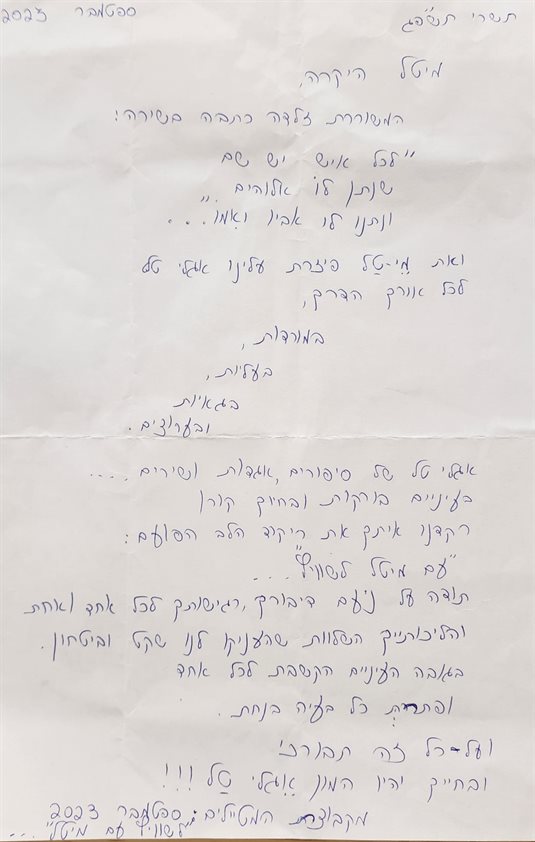 תשרי תשפ"ג ספטמבר 2023
מיטל היקרה,
המשוררת זלדה כתבה בשירה:
"לכל איש יש שם
שנתן לו אלוהים
ונתנו לו אביו ואִמו"....
ואת מֵי-טַל פיזרת עלינו אגלי טל
לכל אורך הדרך,
במורדות,
בעליות,
בגאיות
ובערוצים.
אגלי טל של סיפורים, אגדות ושירים....
בעיניים בורקות ובחיוך קורן
רקדנו איתך את ריקוד הלב הפועם:
"עם מיטל לשוויץ"....
תודה על נֹועם דיבורך, רגישותך לכל אחד ואחת
והליכותייך השלוות שהעניקו לנו שקט וביטחון.
בגובה העיניים הקשבת לכל אחד
ופתרת כל בעיה בנחת.
ועל-כל זה תבורכי
ובחייך יהיו המון אֶגלי טַל !!!
מקבוצת המטיילים: ספטמבר 2023
"לשוויץ עם מיטל"...